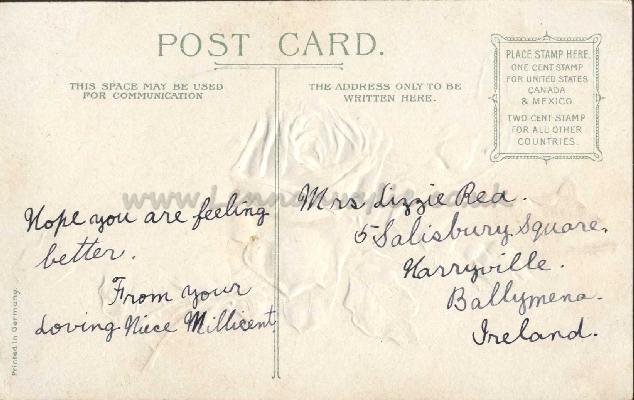 POST CARD.
THIS SPACE MAY BE USED
FOR COMMUNICATION
THE ADDRESS ONLY TO BE
WRITTEN HERE.
PLACE STAMP HERE.
ONE CENT STAMP
FOR UNITED STATES
CANADA
& MEXICO
TWO CENT STAMP
FOR ALL OTHER
COUNTRIES.
Hope you are feeling
better.
From your
Loving Niece Millicent
Mrs Lizzie Rea.
5 Salisbury Square.
Harryville.
Ballymena.
Ireland.
Printed in Germany.